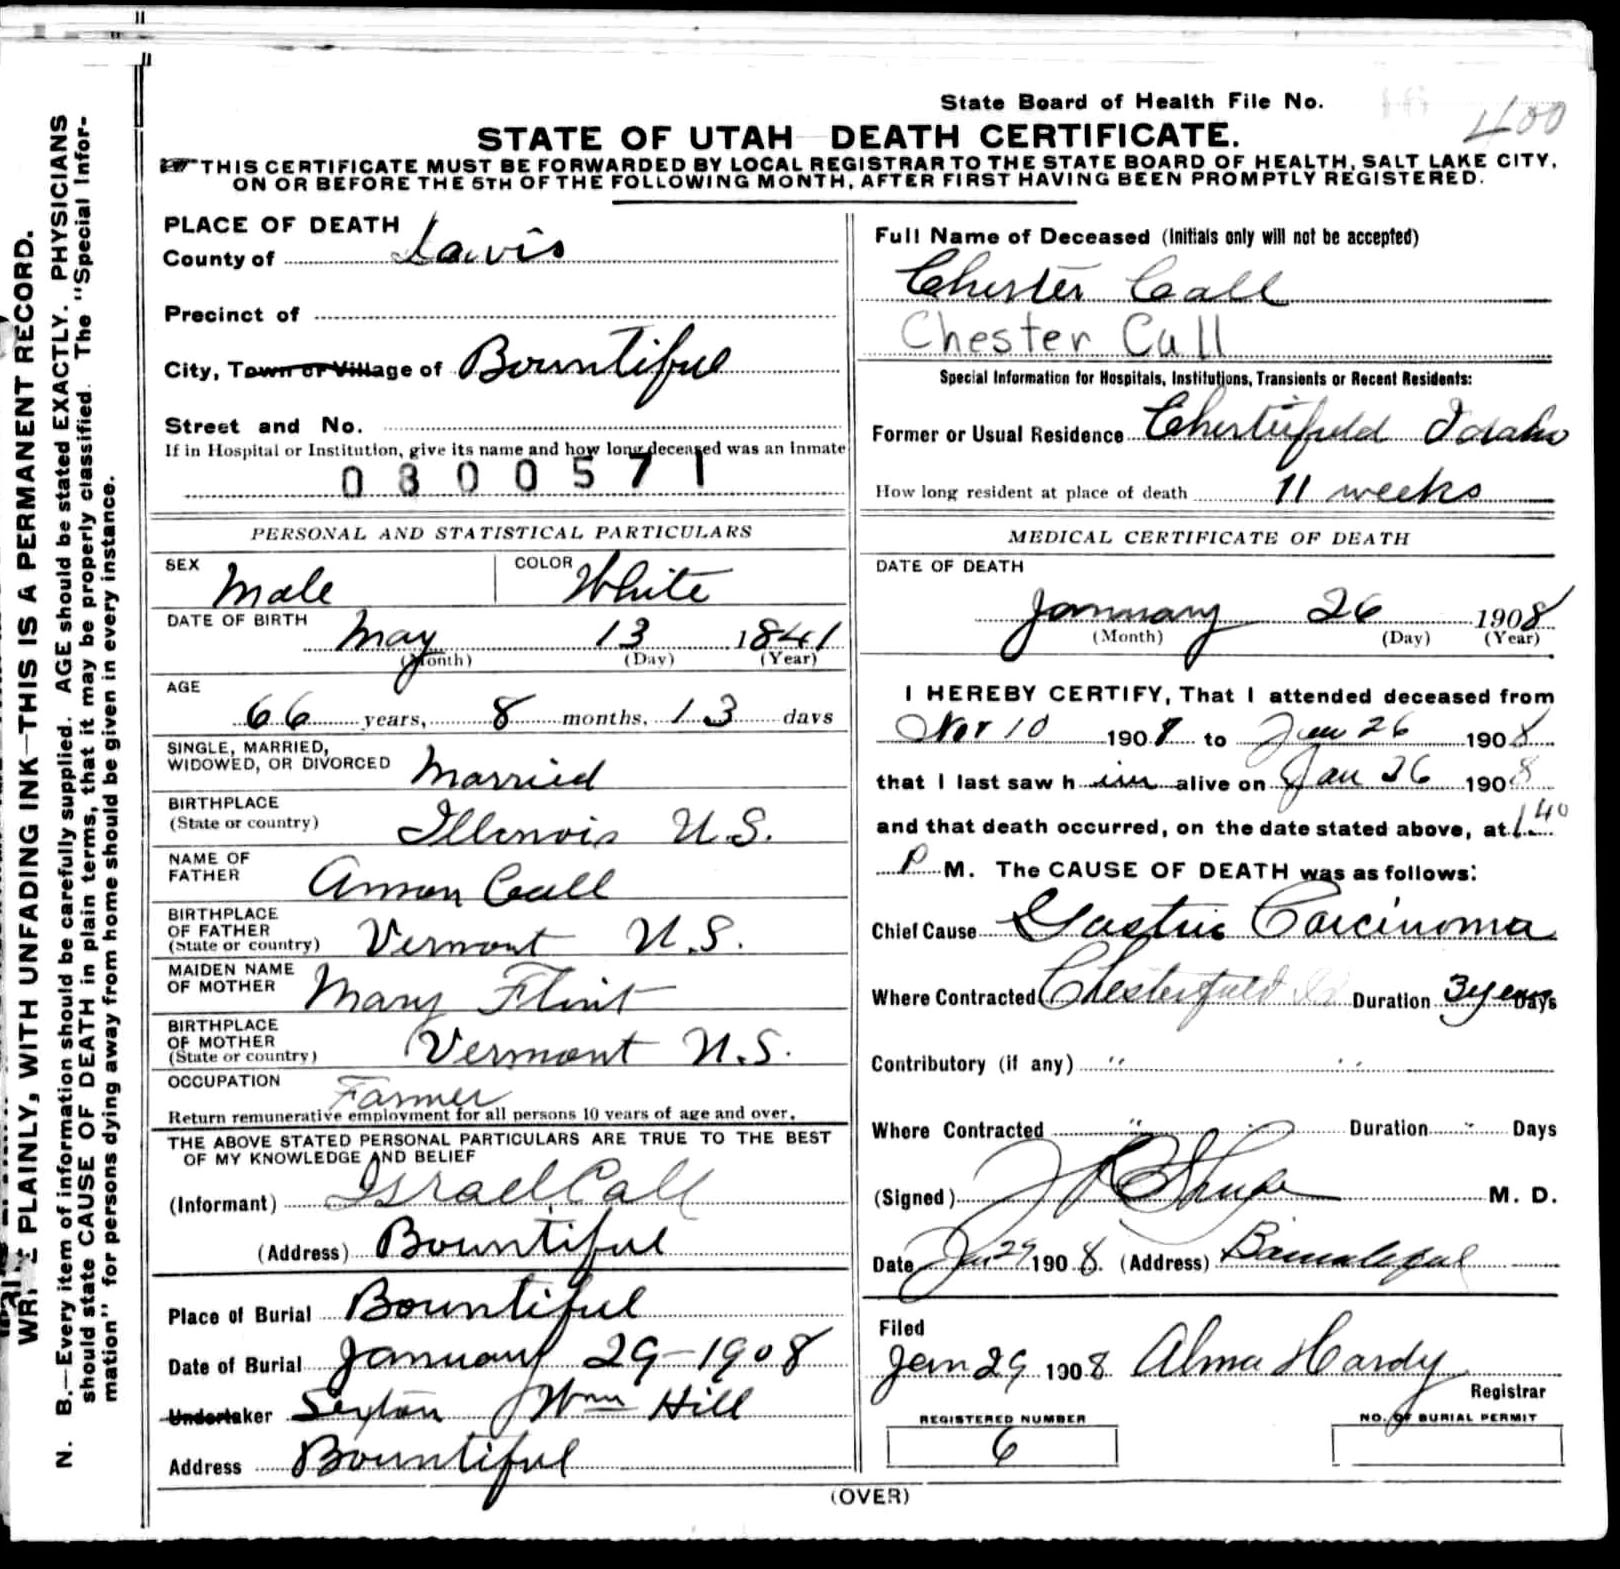 State Board of Health File No. 400
STATE OF UTAH DEATH CERTIFICATE.
THIS CERTIFICATE MUST BE FORWARDED BY LOCAL REGISTRAR TO THE STATE BOARD OF HEALTH, SALT LAKE CITY,
ON OR BEFORE THE 5TH OF THE FOLLOWING MONTH, AFTER FIRST HAVING BEEN PROMPTLY REGISTERED.
WRITE PLAINLY, WITH UNFADING INK—THIS IS A PERMANENT RECORD.
N. B.—Every item of information should be carefully supplied. AGE should be stated EXACTLY. PHYSICIANS
should state CAUSE OF DEATH in plain terms, that it may be properly classified. The "Special Infor-
mation" for persons dying away from home should be given in every instance.
PLACE OF DEATH
County of Davis
Precinct of
City, Town or Village of Bountiful
Street and No.
If in Hospital or Institution, give its name and how long deceased was an inmate
0300571
PERSONAL AND STATISTICAL PARTICULARS
SEX Male COLOR White
DATE OF BIRTH May 13 1841
(Month) (Day) (Year)
AGE
66 years, 8 months, 13 days
SINGLE, MARRIED,
WIDOWED, OR DIVORCED Married
BIRTHPLACE
(State or country) Illinois U.S.
NAME OF
FATHER Anson Call
BIRTHPLACE
OF FATHER
(State or country) Vermont U.S.
MAIDEN NAME
OF MOTHER Mary Flint
BIRTHPLACE
OF MOTHER
(State or country) Vermont U.S.
OCCUPATION Farmer
Return remunerative employment for all persons 10 years of age and over.
THE ABOVE STATED PERSONAL PARTICULARS ARE TRUE TO THE BEST
OF MY KNOWLEDGE AND BELIEF
(Informant) Israel Call
(Address) Bountiful
Place of Burial Bountiful
Date of Burial January 29-1908
Undertaker Sexton Wm Hill
Address Bountiful
Full Name of Deceased (Initials only will not be accepted)
Chester Call
Chester Call
Special Information for Hospitals, Institutions, Transients or Recent Residents:
Former or Usual Residence Chesterfield Idaho
How long resident at place of death 11 weeks
MEDICAL CERTIFICATE OF DEATH
DATE OF DEATH
January 26 1908
(Month) (Day) (Year)
I HEREBY CERTIFY, That I attended deceased from
Nov 10 190 to Jan 26 1908
that I last saw him alive on Jan 26 1908
and that death occurred, on the date stated above, at 1 40
P M. The CAUSE OF DEATH was as follows:
Chief Cause Gastric Carcinoma
Where Contracted Chesterfield Id Duration 3 years Days
Contributory (if any) " "
Where Contracted " " Duration " Days
(Signed) M. D.
Date Jan 29 1908. (Address) Bountiful
Filed
Jan 29 1908 Alma Hardy
Registrar
REGISTERED NUMBER
6
NO. OF BURIAL PERMIT
(OVER)